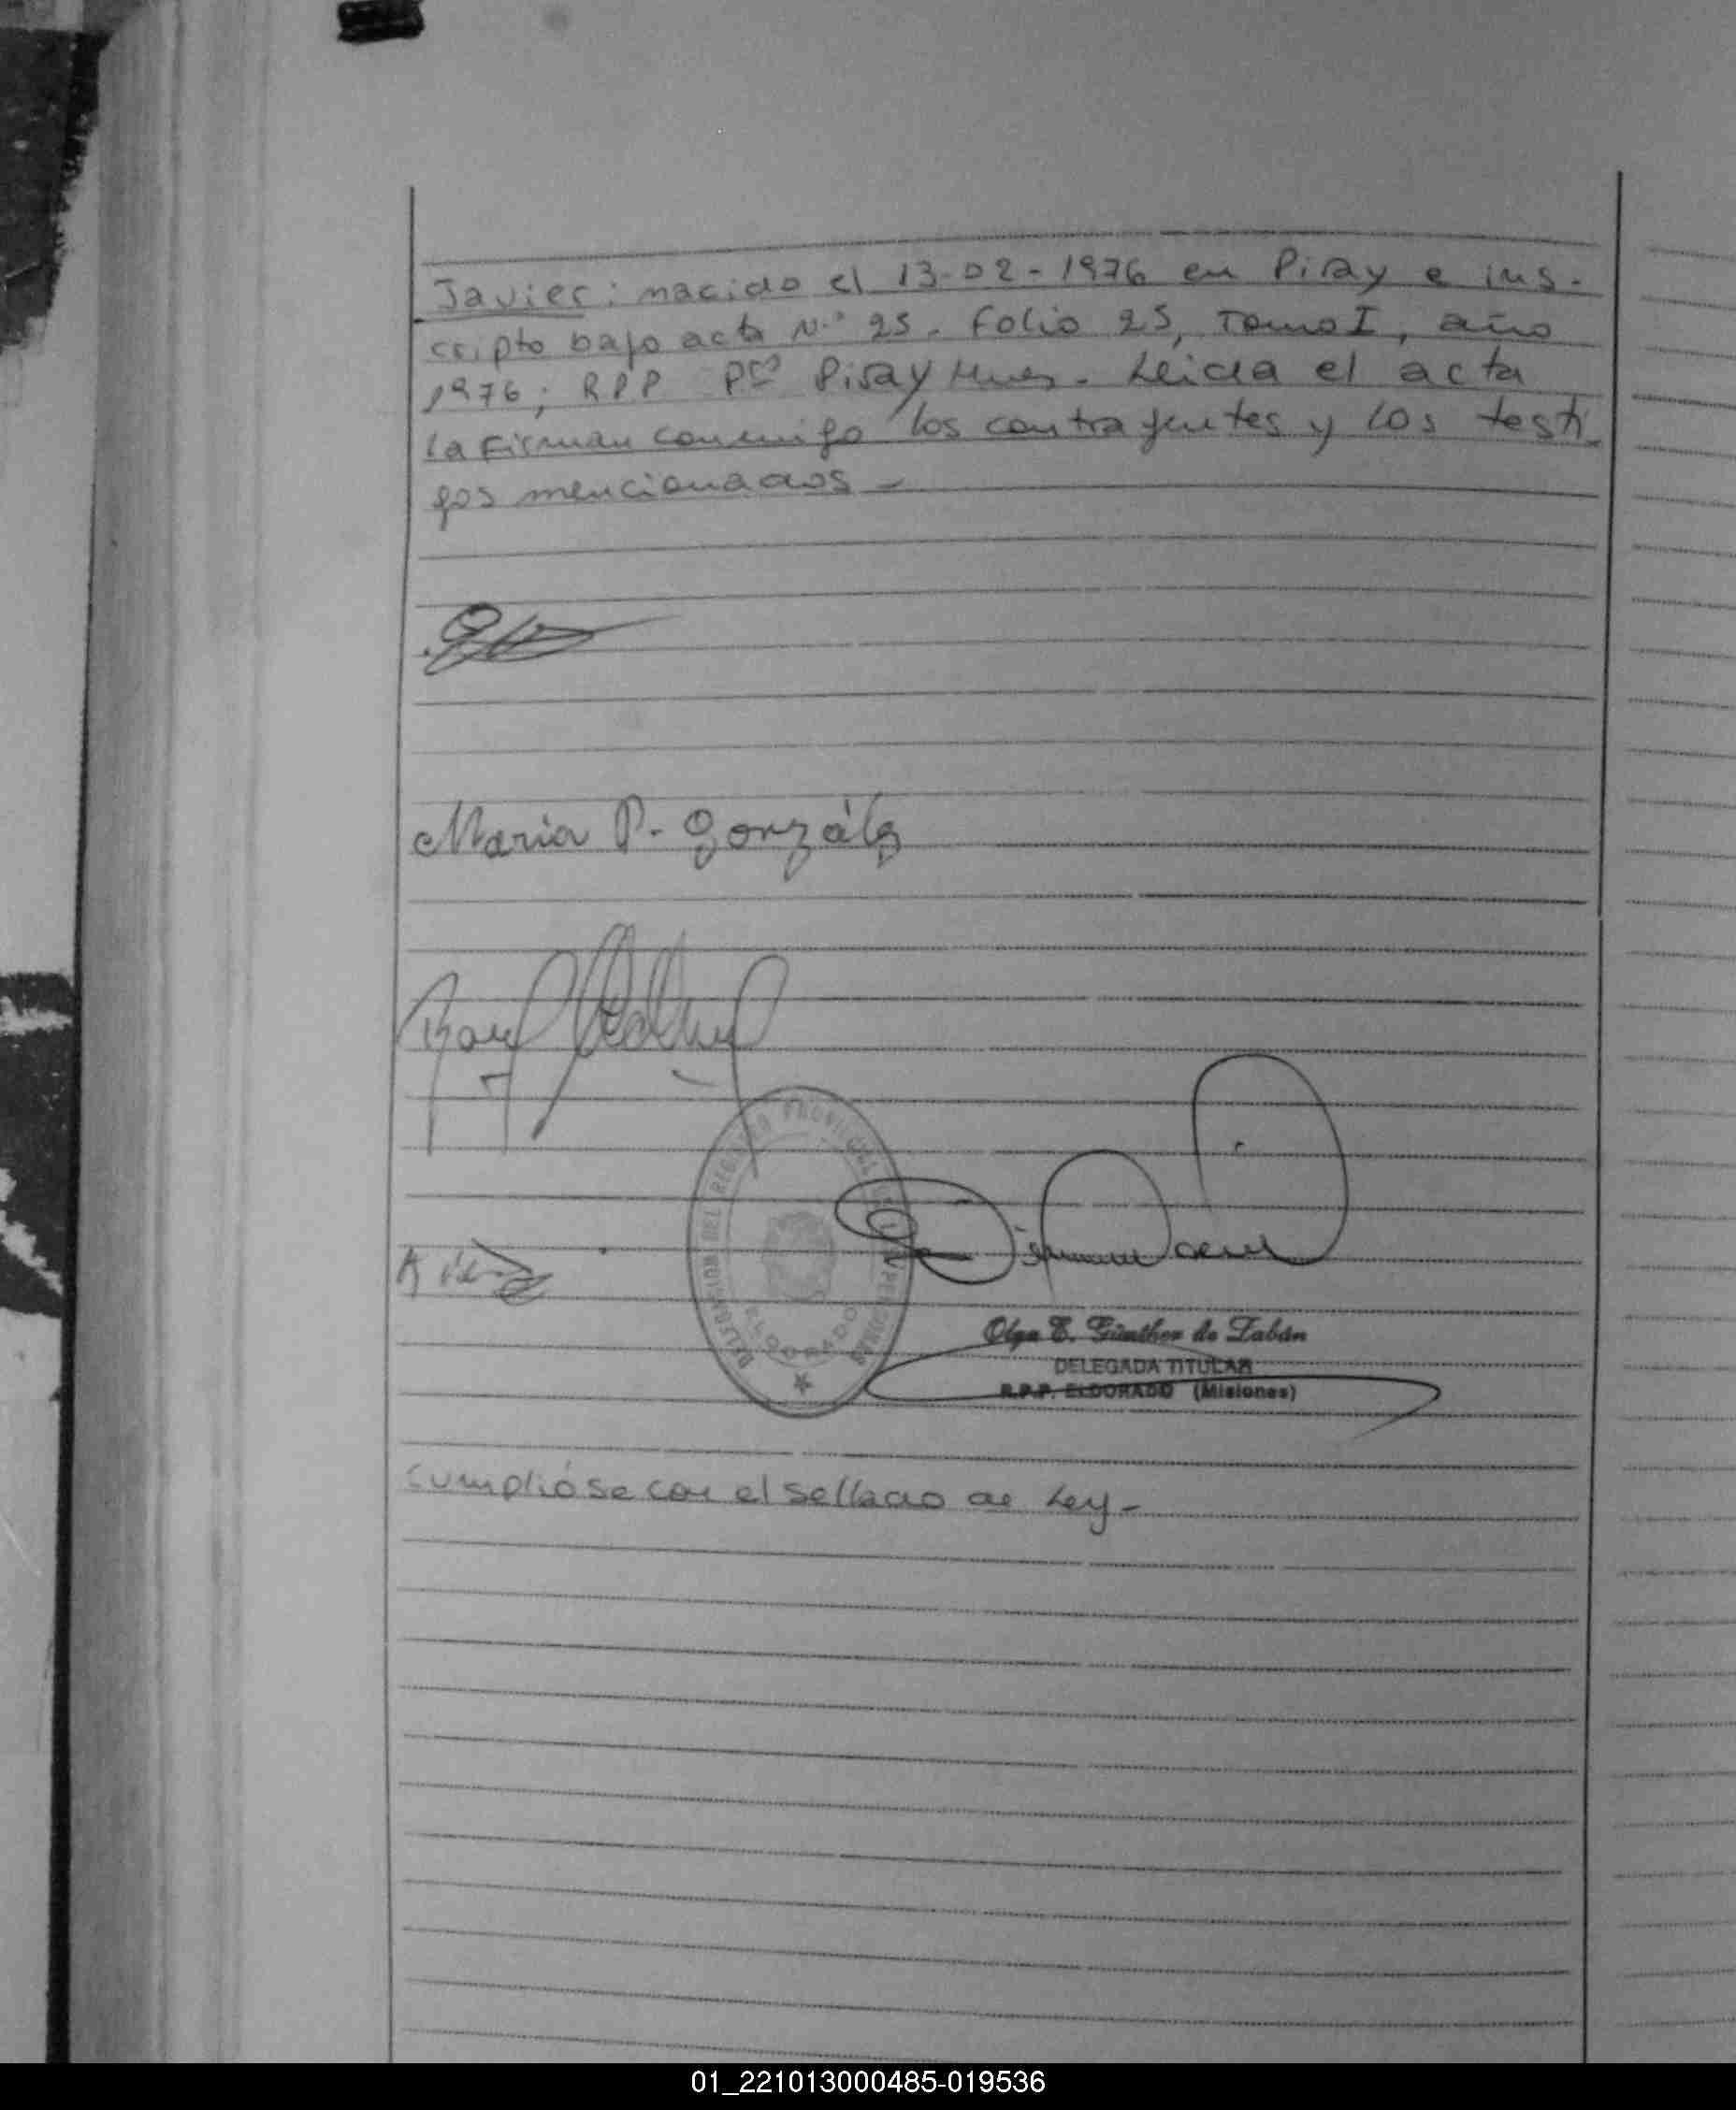 Javier: nacido el 13-02-1976 en Piray e ins-
cripto bajo acta N.° 25. Folio 25, Tomo I, año
1976; RPP Pto Piray Mnes. Leida el acta
la firman conmigo los contrayentes y los testi-
gos mencionados -
Maria P. González
DELEGACION DEL REGISTRO PROVINCIAL DE LAS PERSONAS
ELDORADO
Olga E. Günther de Zabán
DELEGADA TITULAR
R.P.P. ELDORADO (Misiones)
Cumplióse con el sellado de Ley-
01_221013000485-019536